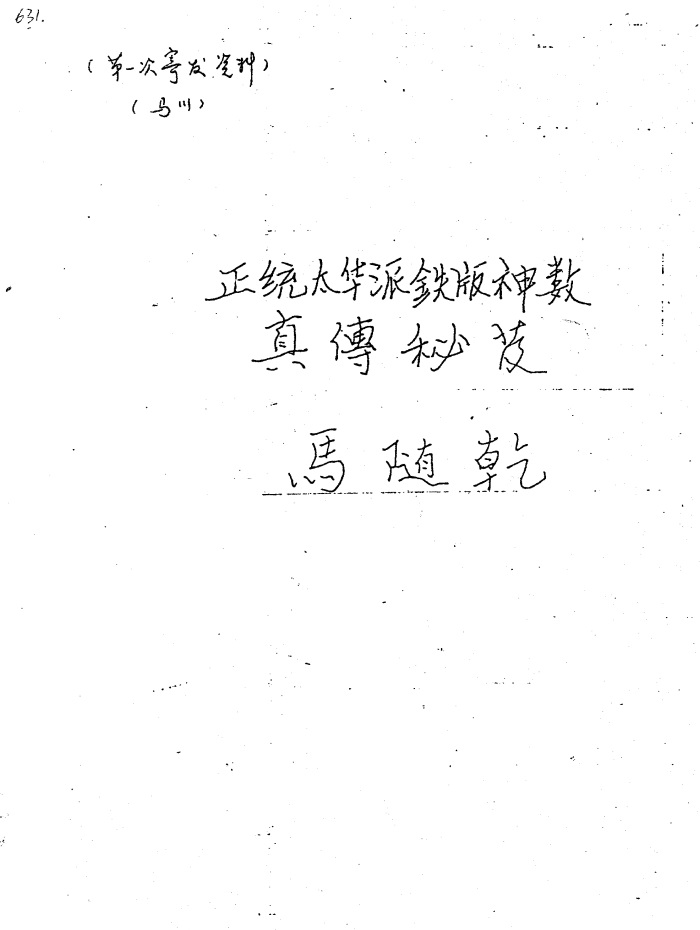 631.
(第一次寄发资料)
(马川)
正统太华派鉄版神数
真傳秘芨
馬随乾